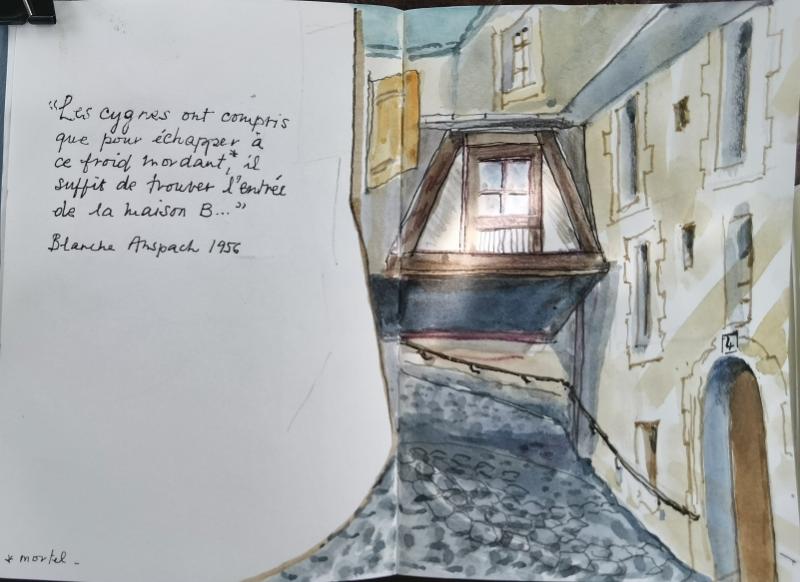 "Les cygnes ont compris
que pour échapper à
ce froid mordant,* il
suffit de trouver l'entrée
de la maison B..."
Blanche Anspach 1956
4
* mortel -